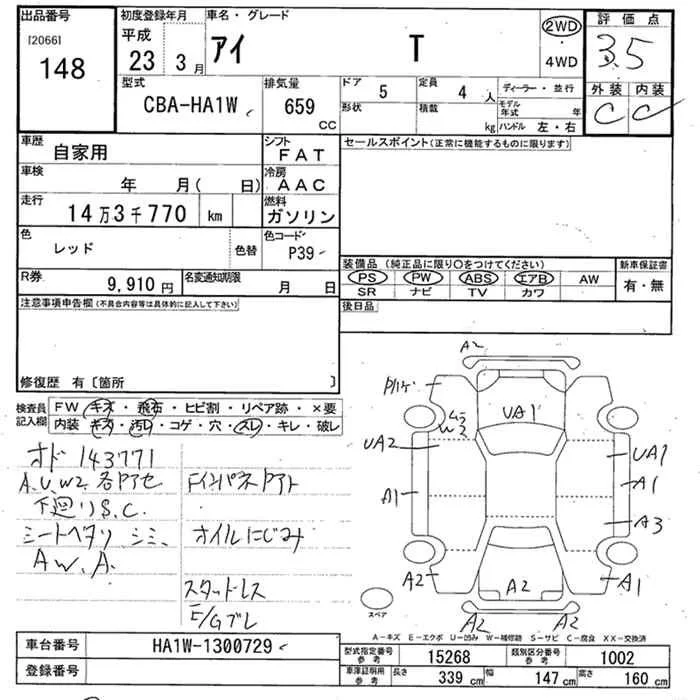 出品番号
[2066]
148
初度登録年月
平成
23 3月
車名・グレード
アイ T
2WD
・
4WD
評価点
3.5
外装 内装
C C
型式
CBA-HA1W
排気量
659
CC
ドア
5
定員
4 人
形状
積載
kg
ディーラー・並行
モデル年式 年
ハンドル 左・右
車歴
自家用
シフト
FAT
車検
年 月( 日)
冷房
AAC
走行
14万3千770 km
燃料
ガソリン
色
レッド
色替
色コード
P39
R券
9,910円
名変通知期限
月 日
セールスポイント(正常に機能するものに限ります)
装備品(純正品に限り○をつけてください)
PS PW ABS エアB AW
SR ナビ TV カワ
新車保証書
有・無
後日品
注意事項申告欄(不具合内容等は具体的に記入して下さい)
修復歴 有〔箇所 〕
検査員
記入欄
FW キズ・飛石・ヒビ割・リペア跡・×要
内装 キズ・汚レ・コゲ・穴・スレ・キレ・破レ
オド 143771
A.U.W2 各Pアセ
下廻りS.C.
シートヘタリ シミ、
A W. A.
FインパネPアト
オイルにじみ
スタッドレス
E/Gブレ
A2
UA1
W3
UA2
UA1
A1
A1
A3
A2
A2
A1
A2
A2
スペア
A-キズ E-エクボ U-凹み W-補修跡 S-サビ C-腐食 XX-交換済
車台番号
HA1W-1300729
登録番号
型式指定番号
参考
15268
類別区分番号
参考
1002
車庫証明用
参考
長さ 339 cm
幅 147 cm
高さ 160 cm